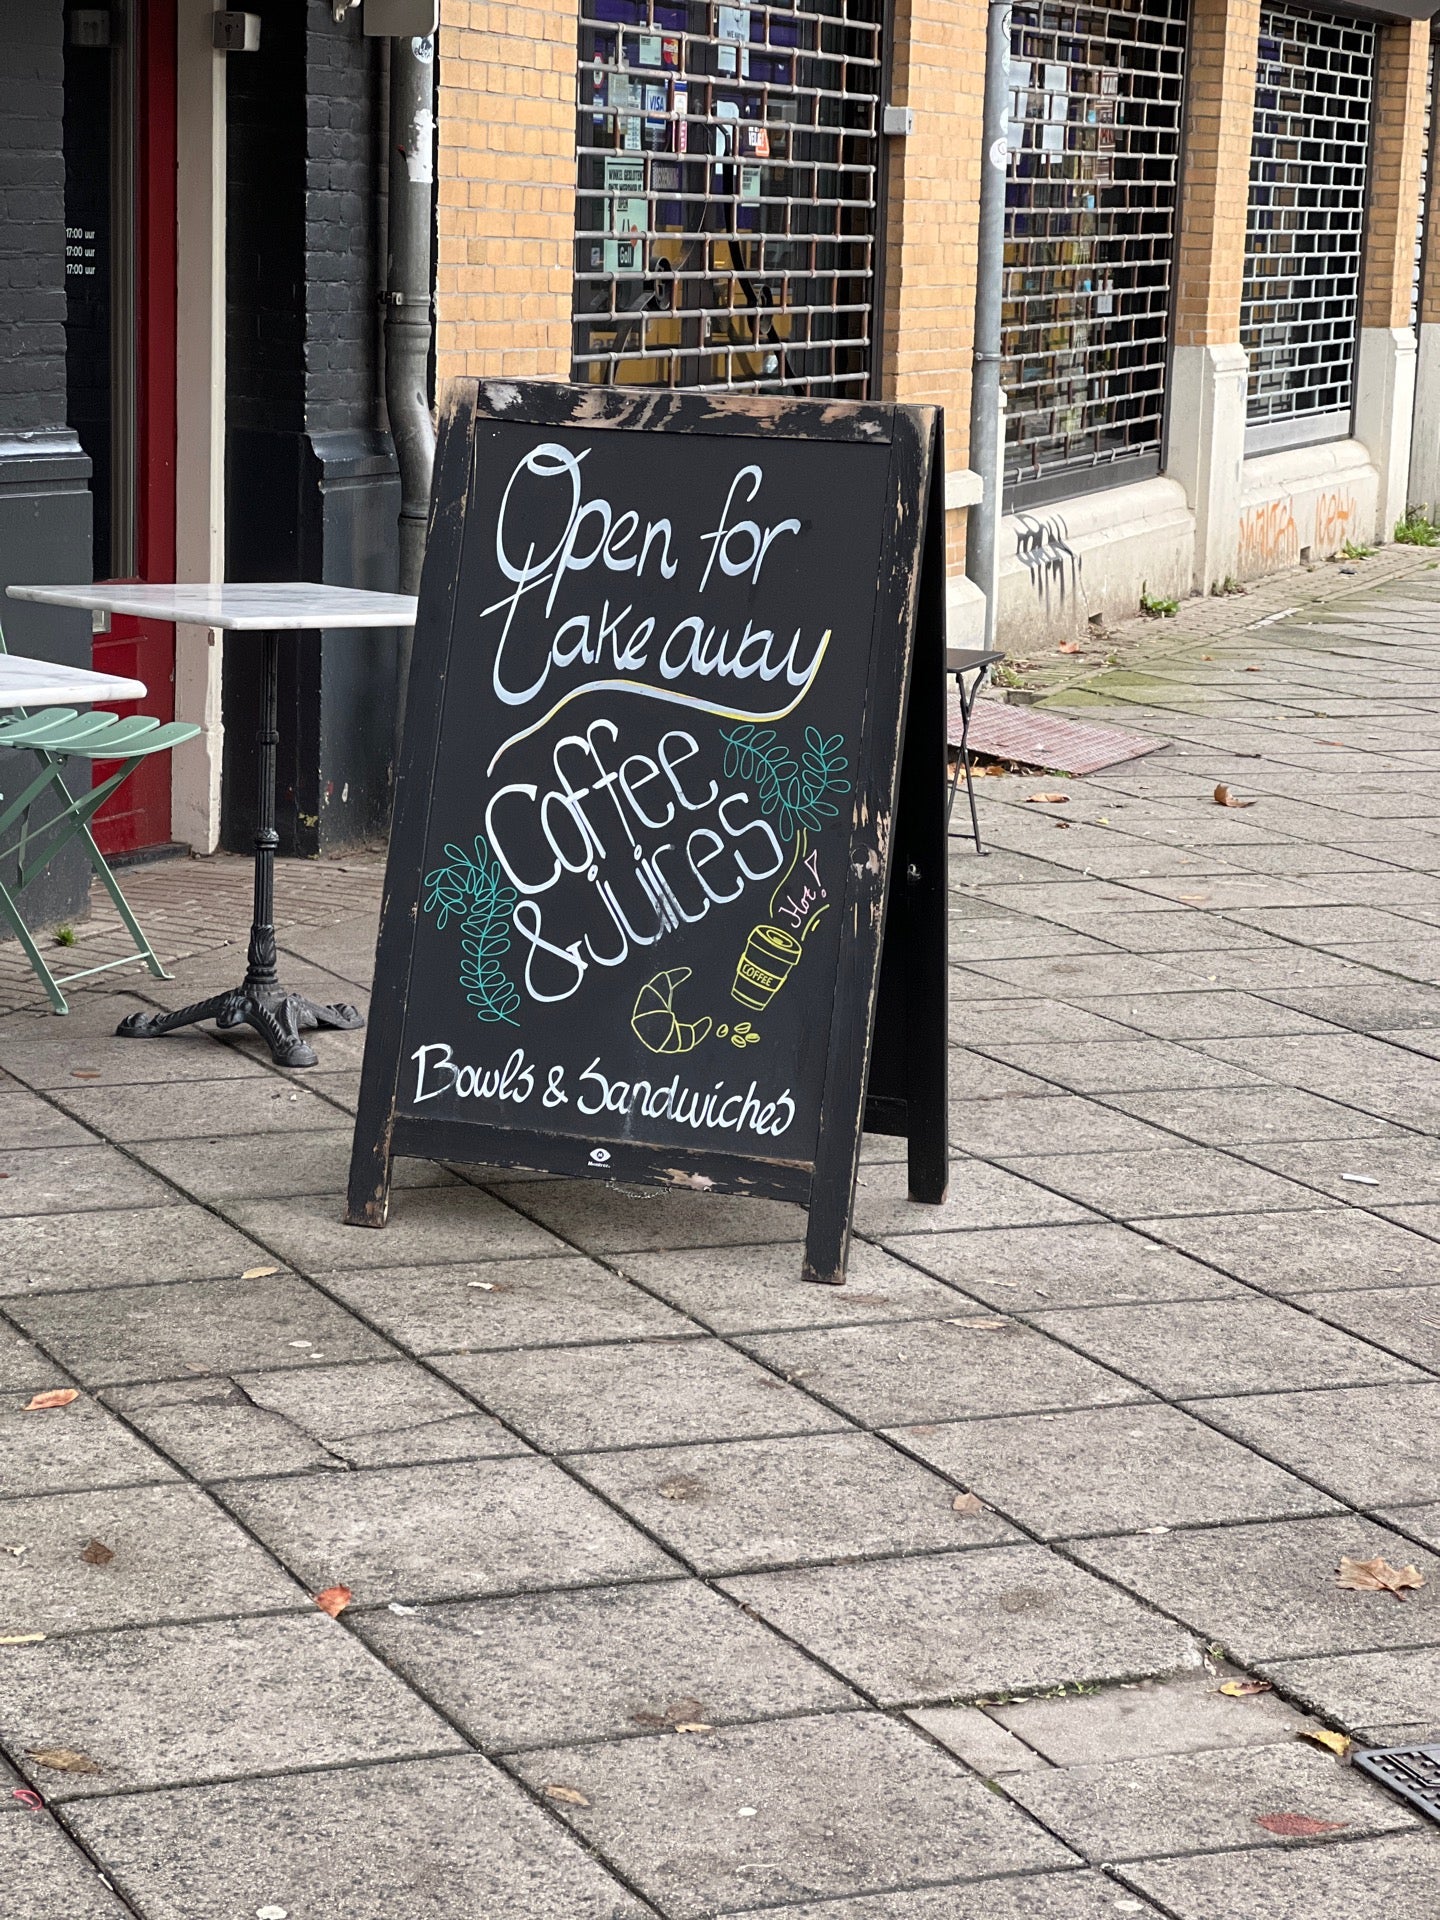 17:00 uur
17:00 uur
17:00 uur
VISA
WINKEL GESLOTEN
OPEN
Go!!
Open for
take away
Coffee
& juices
Hot!
COFFEE
Bowls & Sandwiches